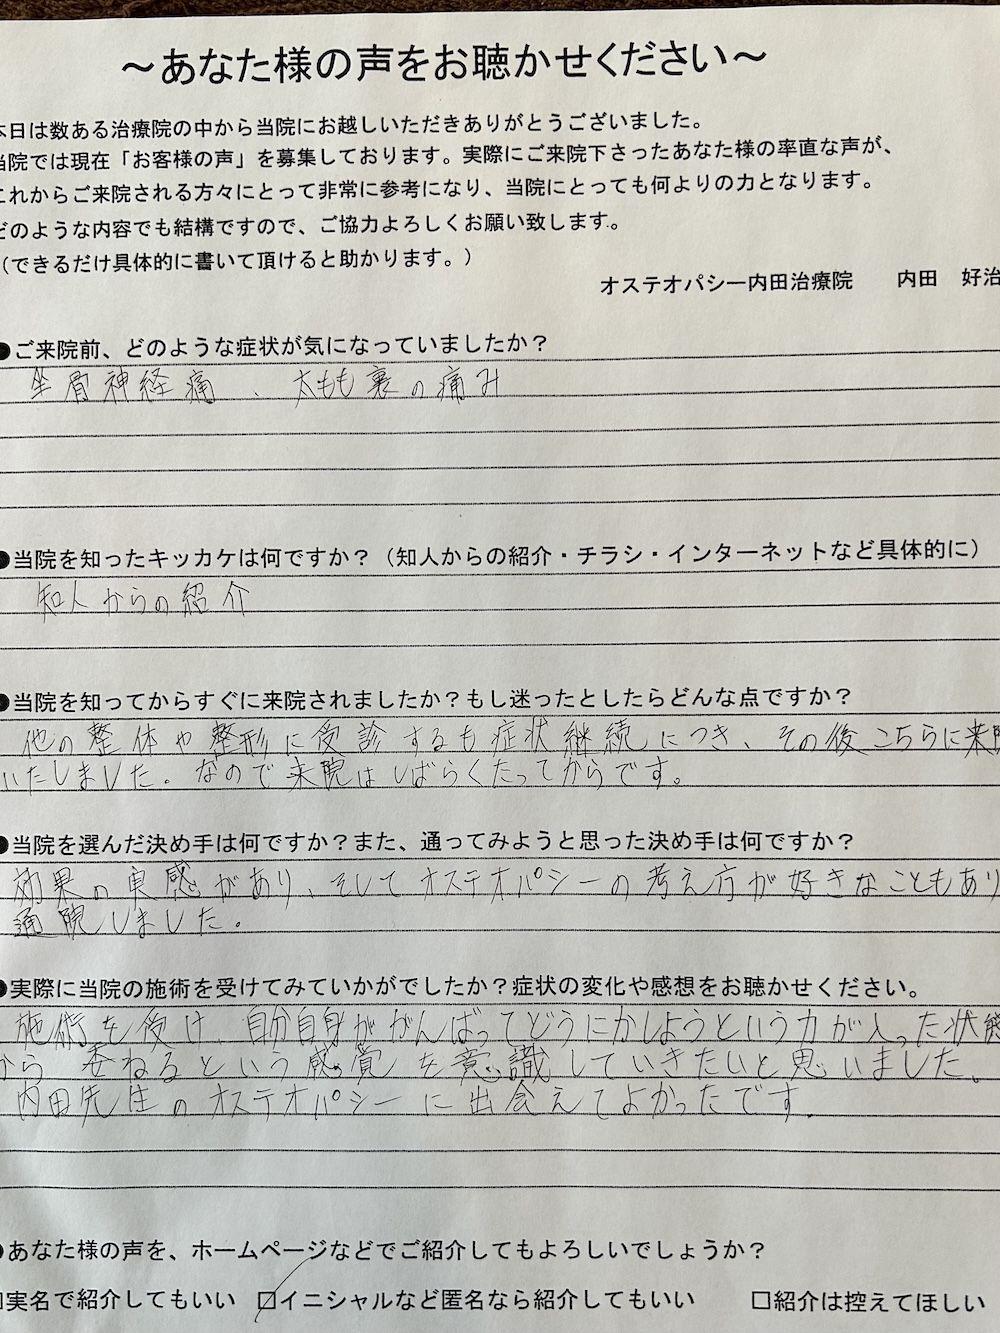 ～あなた様の声をお聴かせください～
本日は数ある治療院の中から当院にお越しいただきありがとうございました。
当院では現在「お客様の声」を募集しております。実際にご来院下さったあなた様の率直な声が、
これからご来院される方々にとって非常に参考になり、当院にとっても何よりの力となります。
どのような内容でも結構ですので、ご協力よろしくお願い致します。
（できるだけ具体的に書いて頂けると助かります。）
オステオパシー内田治療院　　内田　好治
●ご来院前、どのような症状が気になっていましたか？
坐骨神経痛、太もも裏の痛み
●当院を知ったキッカケは何ですか？（知人からの紹介・チラシ・インターネットなど具体的に）
知人からの紹介
●当院を知ってからすぐに来院されましたか？もし迷ったとしたらどんな点ですか？
他の整体や整形に受診するも症状継続につき、その後こちらに来院
いたしました。なので来院はしばらくたってからです。
●当院を選んだ決め手は何ですか？また、通ってみようと思った決め手は何ですか？
効果の実感があり、そしてオステオパシーの考え方が好きなこともあり
通院しました。
●実際に当院の施術を受けてみていかがでしたか？症状の変化や感想をお聴かせください。
施術を受け、自分自身ががんばってどうにかしようという力が入った状態
から 委ねるという感覚を意識していきたいと思いました。
内田先生のオステオパシーに出会えてよかったです。
●あなた様の声を、ホームページなどでご紹介してもよろしいでしょうか？
□実名で紹介してもいい　□イニシャルなど匿名なら紹介してもいい　□紹介は控えてほしい